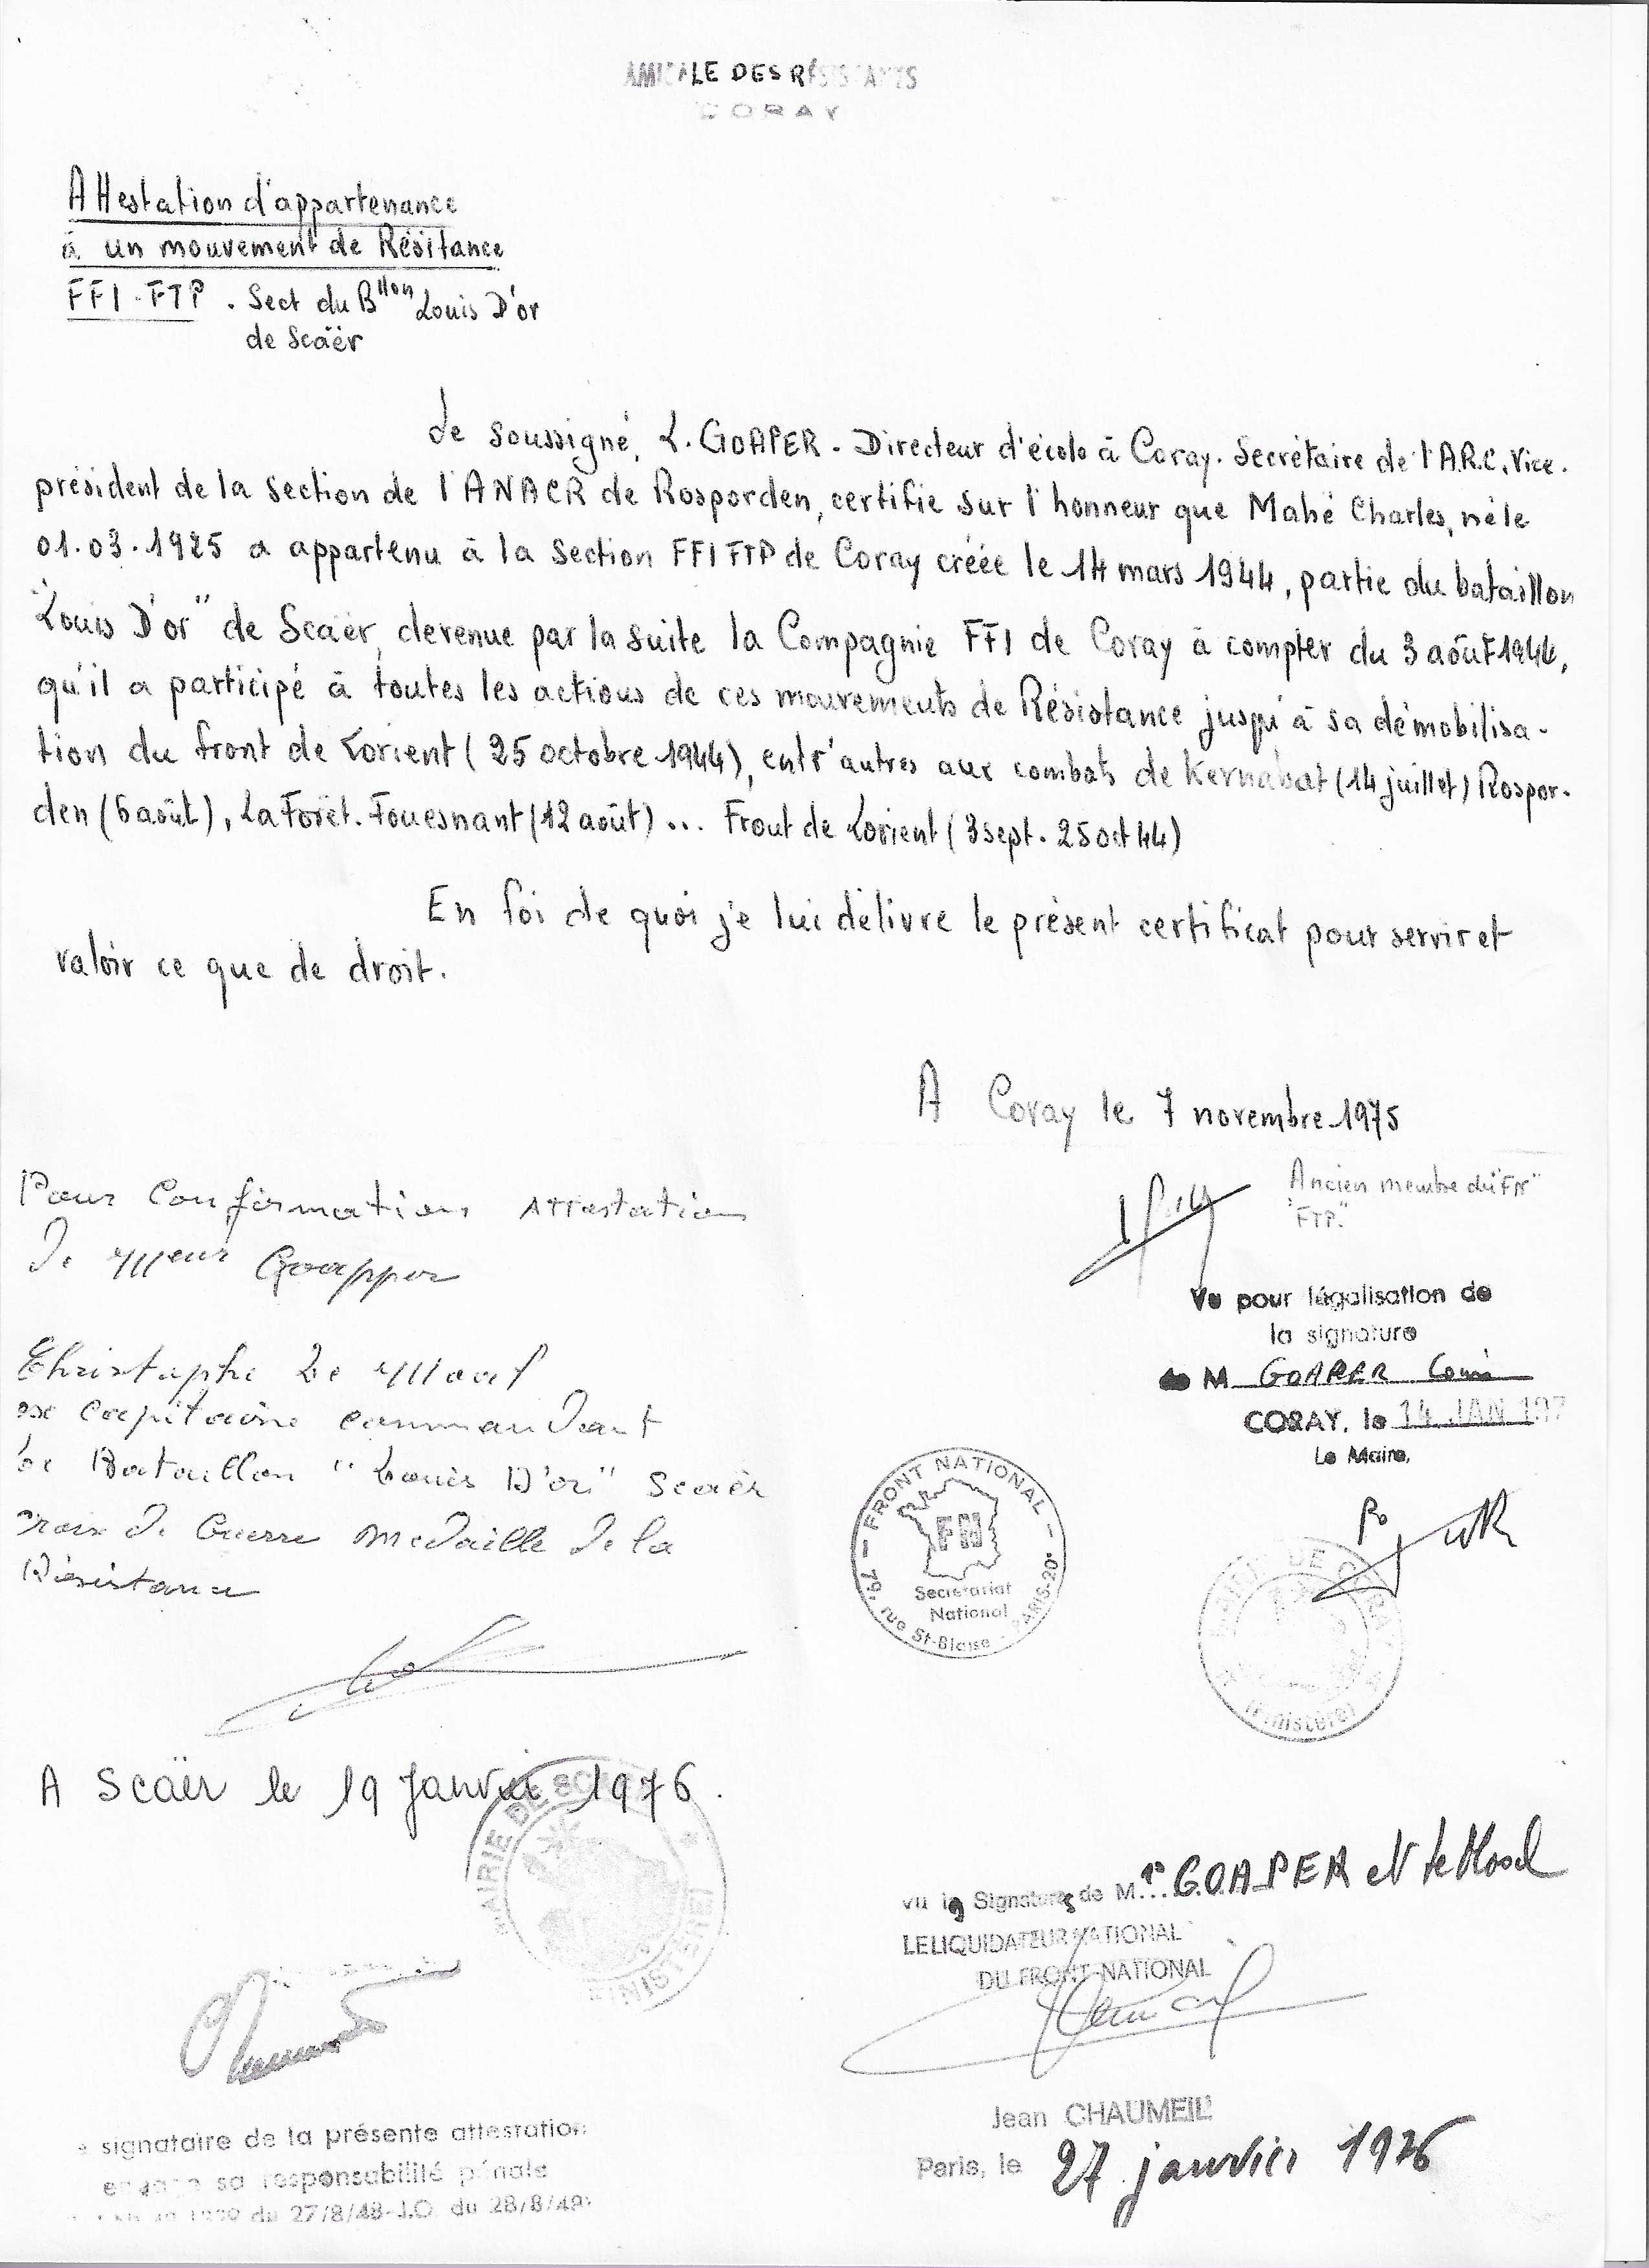 AMICALE DES RÉSISTANTS
CORAY
Attestation d'appartenance
à un mouvement de Résitance
FFI-FTP. Sect du Bllon Louis D'or
de Scäër
Je soussigné, L. GOAPER - Directeur d'école à Coray. Secrétaire de l'A.R.C, Vice.
président de la section de l'ANACR de Rosporden, certifie sur l'honneur que Mahé Charles, né le
01.03.1925 a appartenu à la section FFI FTP de Coray créée le 14 mars 1944, partie du bataillon
"Louis D'or" de Scaër, devenue par la suite la Compagnie FFI de Coray à compter du 3 août 1944,
qu'il a participé à toutes les actions de ces mouvements de Résistance jusqu'à sa démobilisa-
tion du front de Lorient (25 octobre 1944), entr'autres aux combats de Kernabat (14 juillet) Rospor-
den (6 août), La Forêt-Fouesnant (12 août)... Front de Lorient (3 sept. 25 oct 44)
En foi de quoi je lui délivre le présent certificat pour servir et
valoir ce que de droit.
A Coray le 7 novembre 1975
Ancien membre du "FN"
"FTP."
Pour Confirmation Attestation
De Meur Goapper
Vu pour légalisation de
la signature
de M GOAPER Louis
CORAY, le 14 JAN 197
Le Maire,
Christophe Le Moal
ex Capitaine commandant
le Bataillon "Louis D'or" Scaër
croix De Guerre Medaille De la
Résistance
FRONT NATIONAL
FN
Secrétariat
National
19, rue St-Blaise - PARIS-20e
MAIRIE DE CORAY
(Finistère)
A Scäer le 19 Janvier 1976.
MAIRIE DE SCAËR
FINISTÈRE
vu la Signatures de M.rs GOAPER et Le Moal
LE LIQUIDATEUR NATIONAL
DU FRONT NATIONAL
Jean CHAUMEIL
Paris, le 27 janvier 1976
signataire de la présente attestation
engage sa responsabilité pénale
du 27/8/48-J.O. du 28/8/48